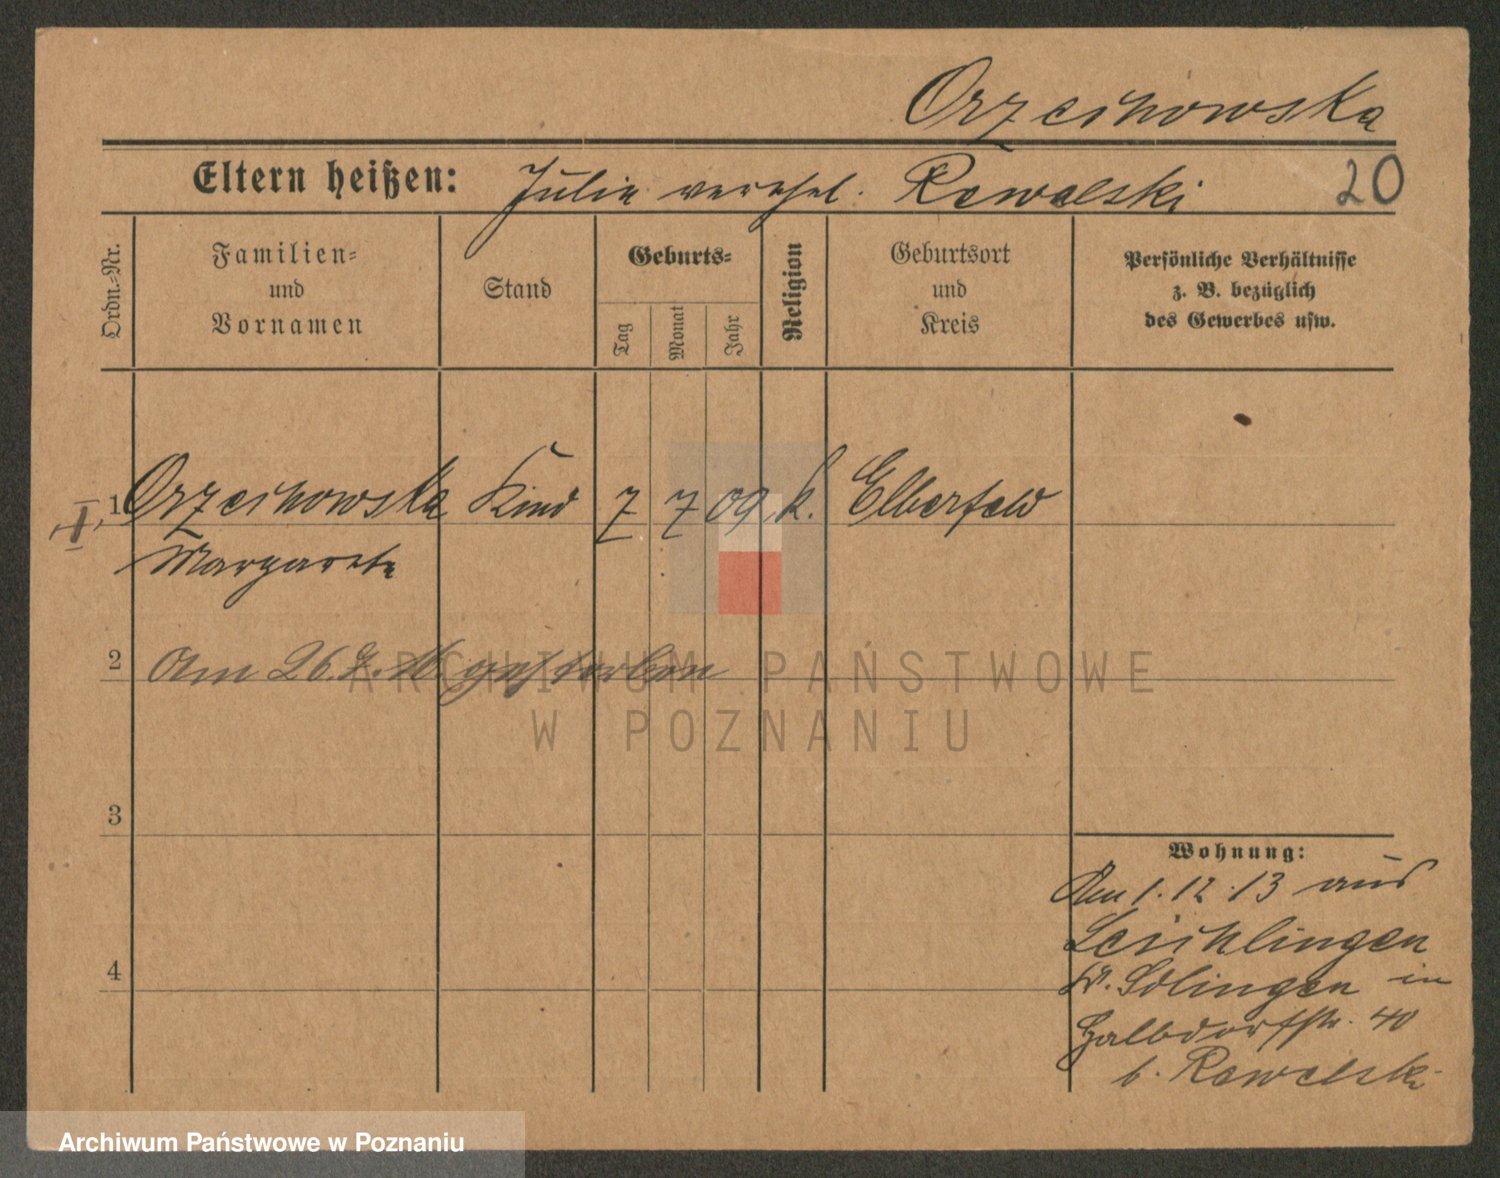 Orzechowska
Eltern heißen: Julie verehel. Rewalski 20
Ordn.-Nr.
Familien-
und
Vornamen
Stand
Geburts-
Tag
Monat
Jahr
Religion
Geburtsort
und
Kreis
Persönliche Verhältnisse
z. B. bezüglich
des Gewerbes usw.
1 Orzechowska Kind 7 7 09 k. Elberfeld
Margarete
2 Am 26. gestorben
3
4
Wohnung:
Am 1.12.13 aus
Leichlingen
Kr. Solingen in
Halbdorfstr. 40
b. Rewalski
ARCHIWUM PAŃSTWOWE
W POZNANIU
Archiwum Państwowe w Poznaniu